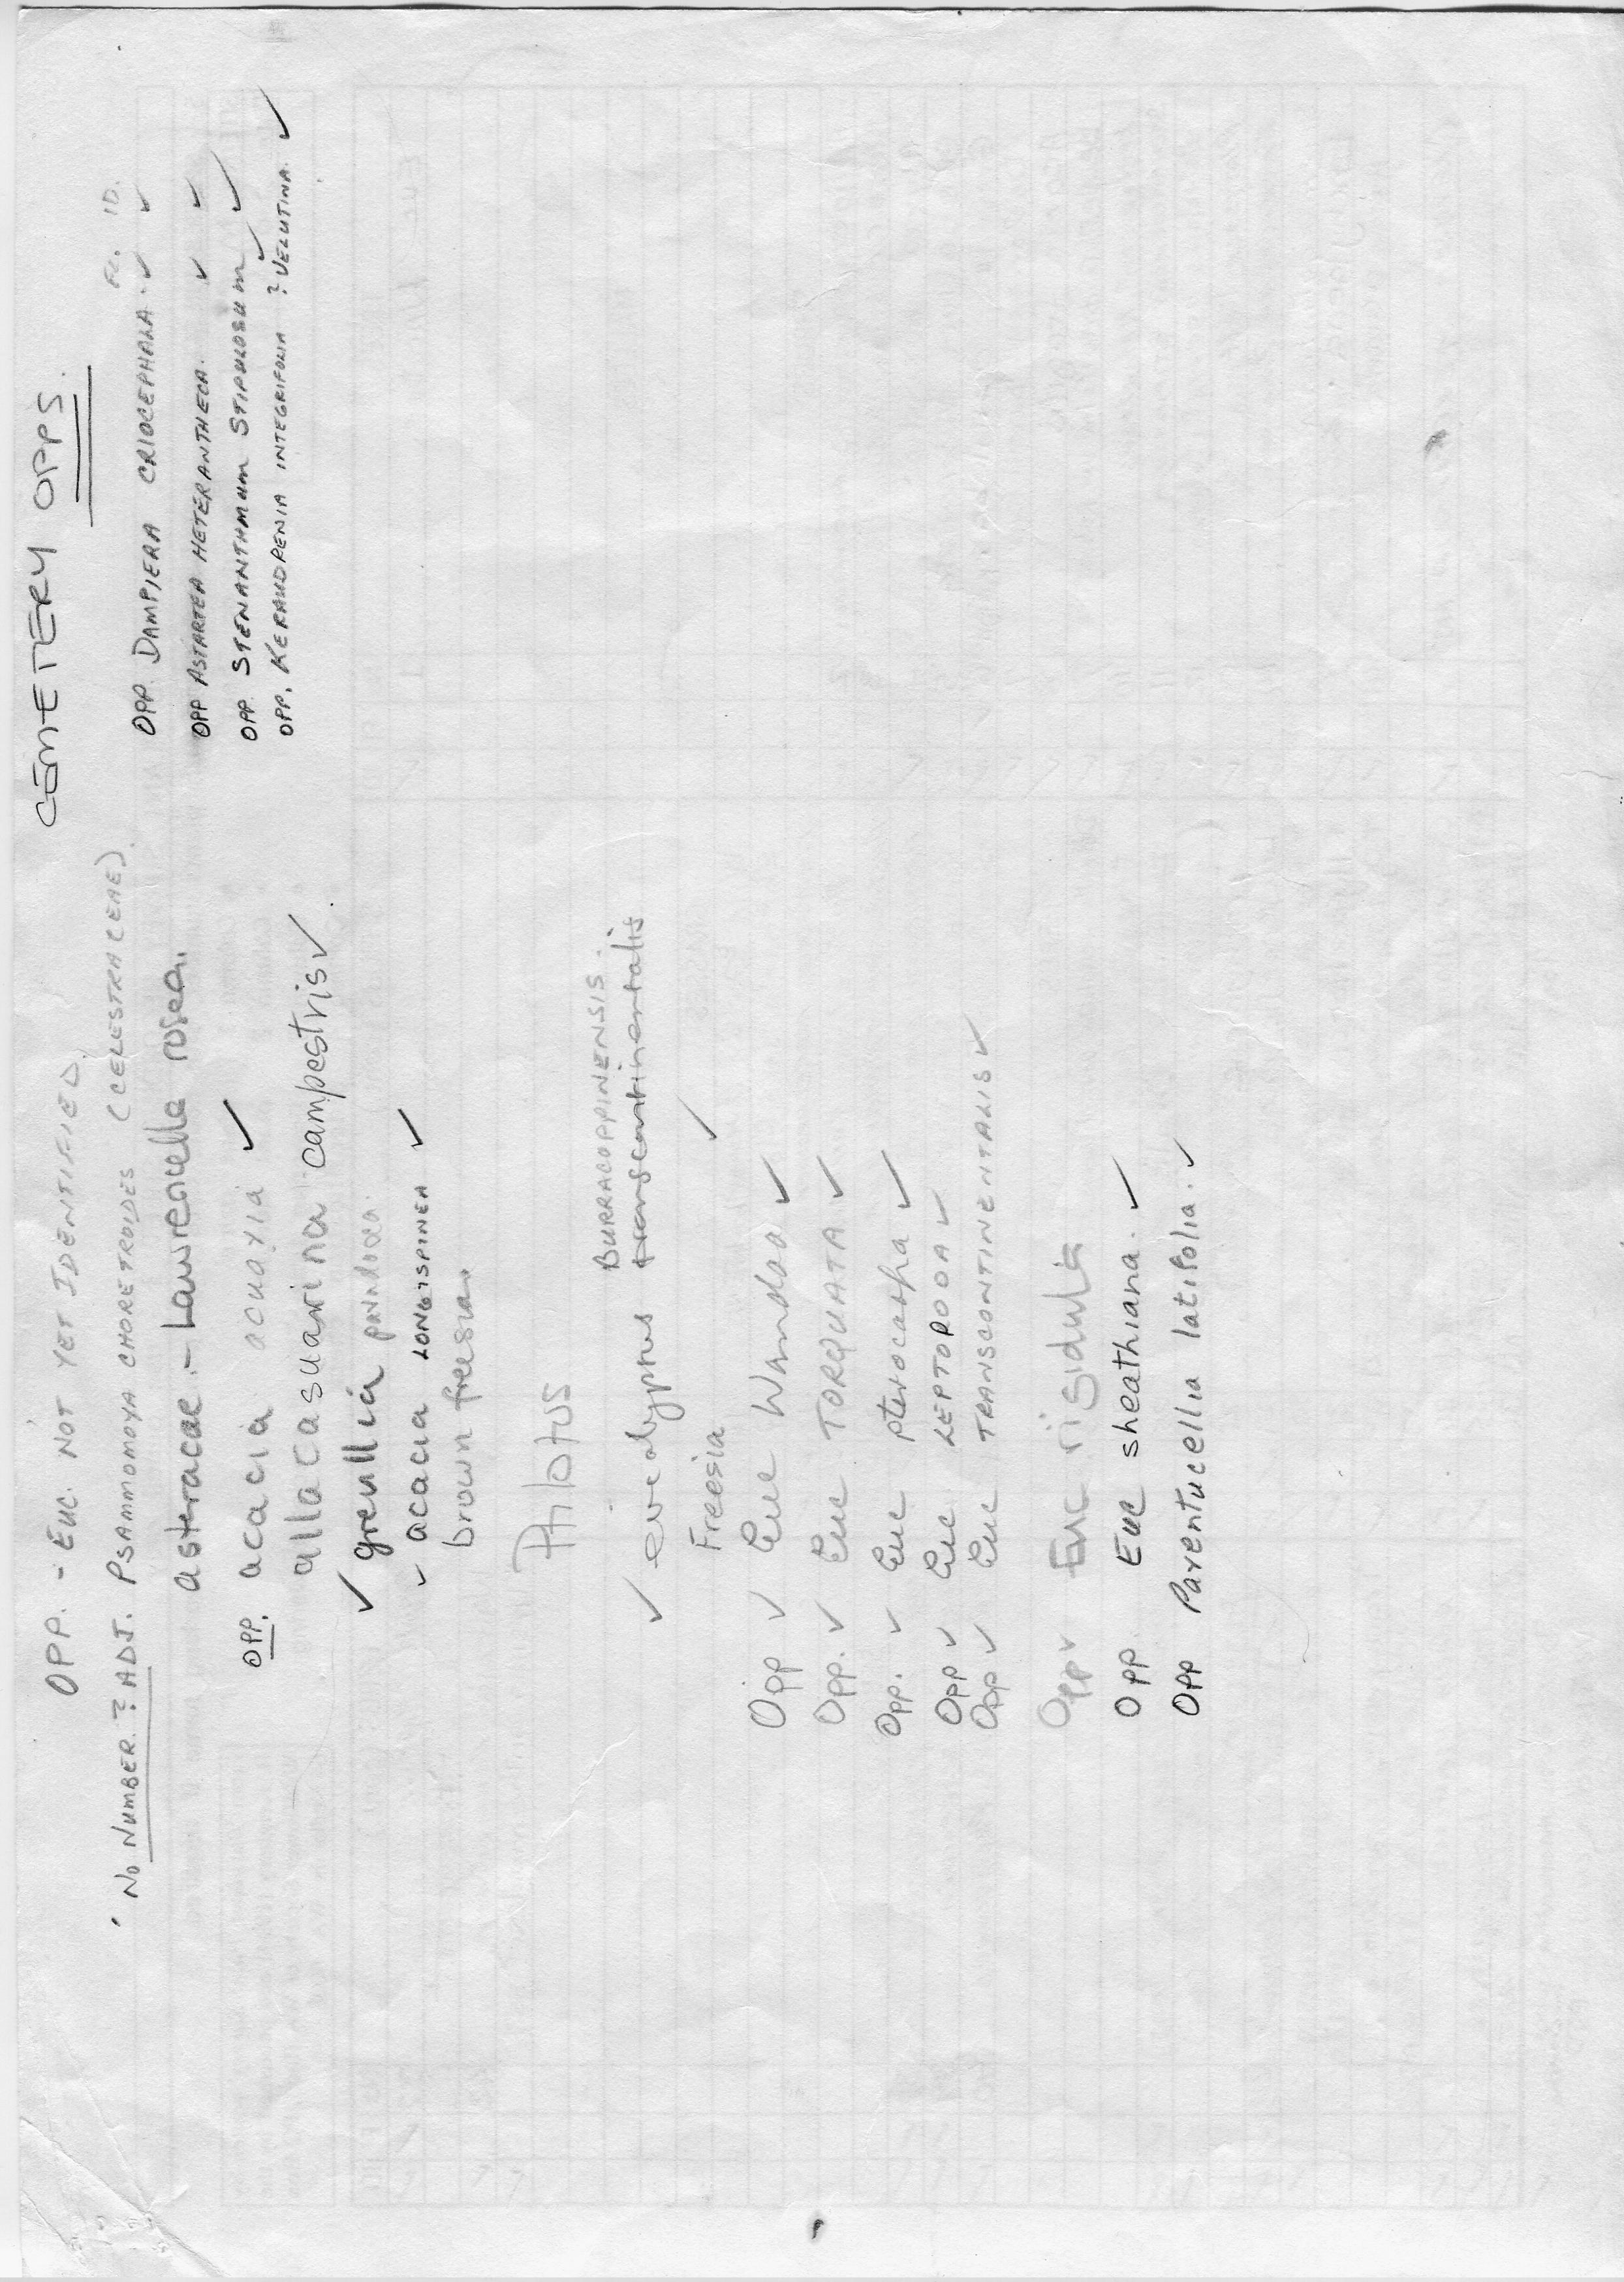 CEMETERY OPPS.
Fl. ID.
OPP. DAMPIERA CRIOCEPHALA. ✓ ✓
OPP ASTARTEA HETERANTHECA. ✓ ✓
OPP. STENANTHMUM STIPULOSUM ✓ ✓
OPP. KERAUDRENIA INTEGRIFOLIA ? VELUTINA. ✓
OPP. - EUC. NOT YET IDENTIFIED.
No NUMBER ? ADJ. PSAMMOMOYA CHORETROIDES (CELESTRACEAE).
asteracae - Lawrencella rosea.
OPP. acacia acuaria ✓
allacasuarina campestris ✓
✓ grevillia
✓ acacia LONGISPINEA ✓
brown freesia.
Ptilotus
BURRACOPPINENSIS.
✓ eucalyptus transcontinentalis
Freesia ✓
Opp ✓ Euc Wandoo ✓
Opp. ✓ Euc TORQUATA ✓
Opp. ✓ Euc pterocarpa ✓
Opp ✓ Euc LEPTOPODA ✓
Opp ✓ Euc TRANSCONTINENTALIS ✓
Opp ✓ Euc rigidula
Opp Euc sheathiana. ✓
Opp Parentucellia latifolia. ✓